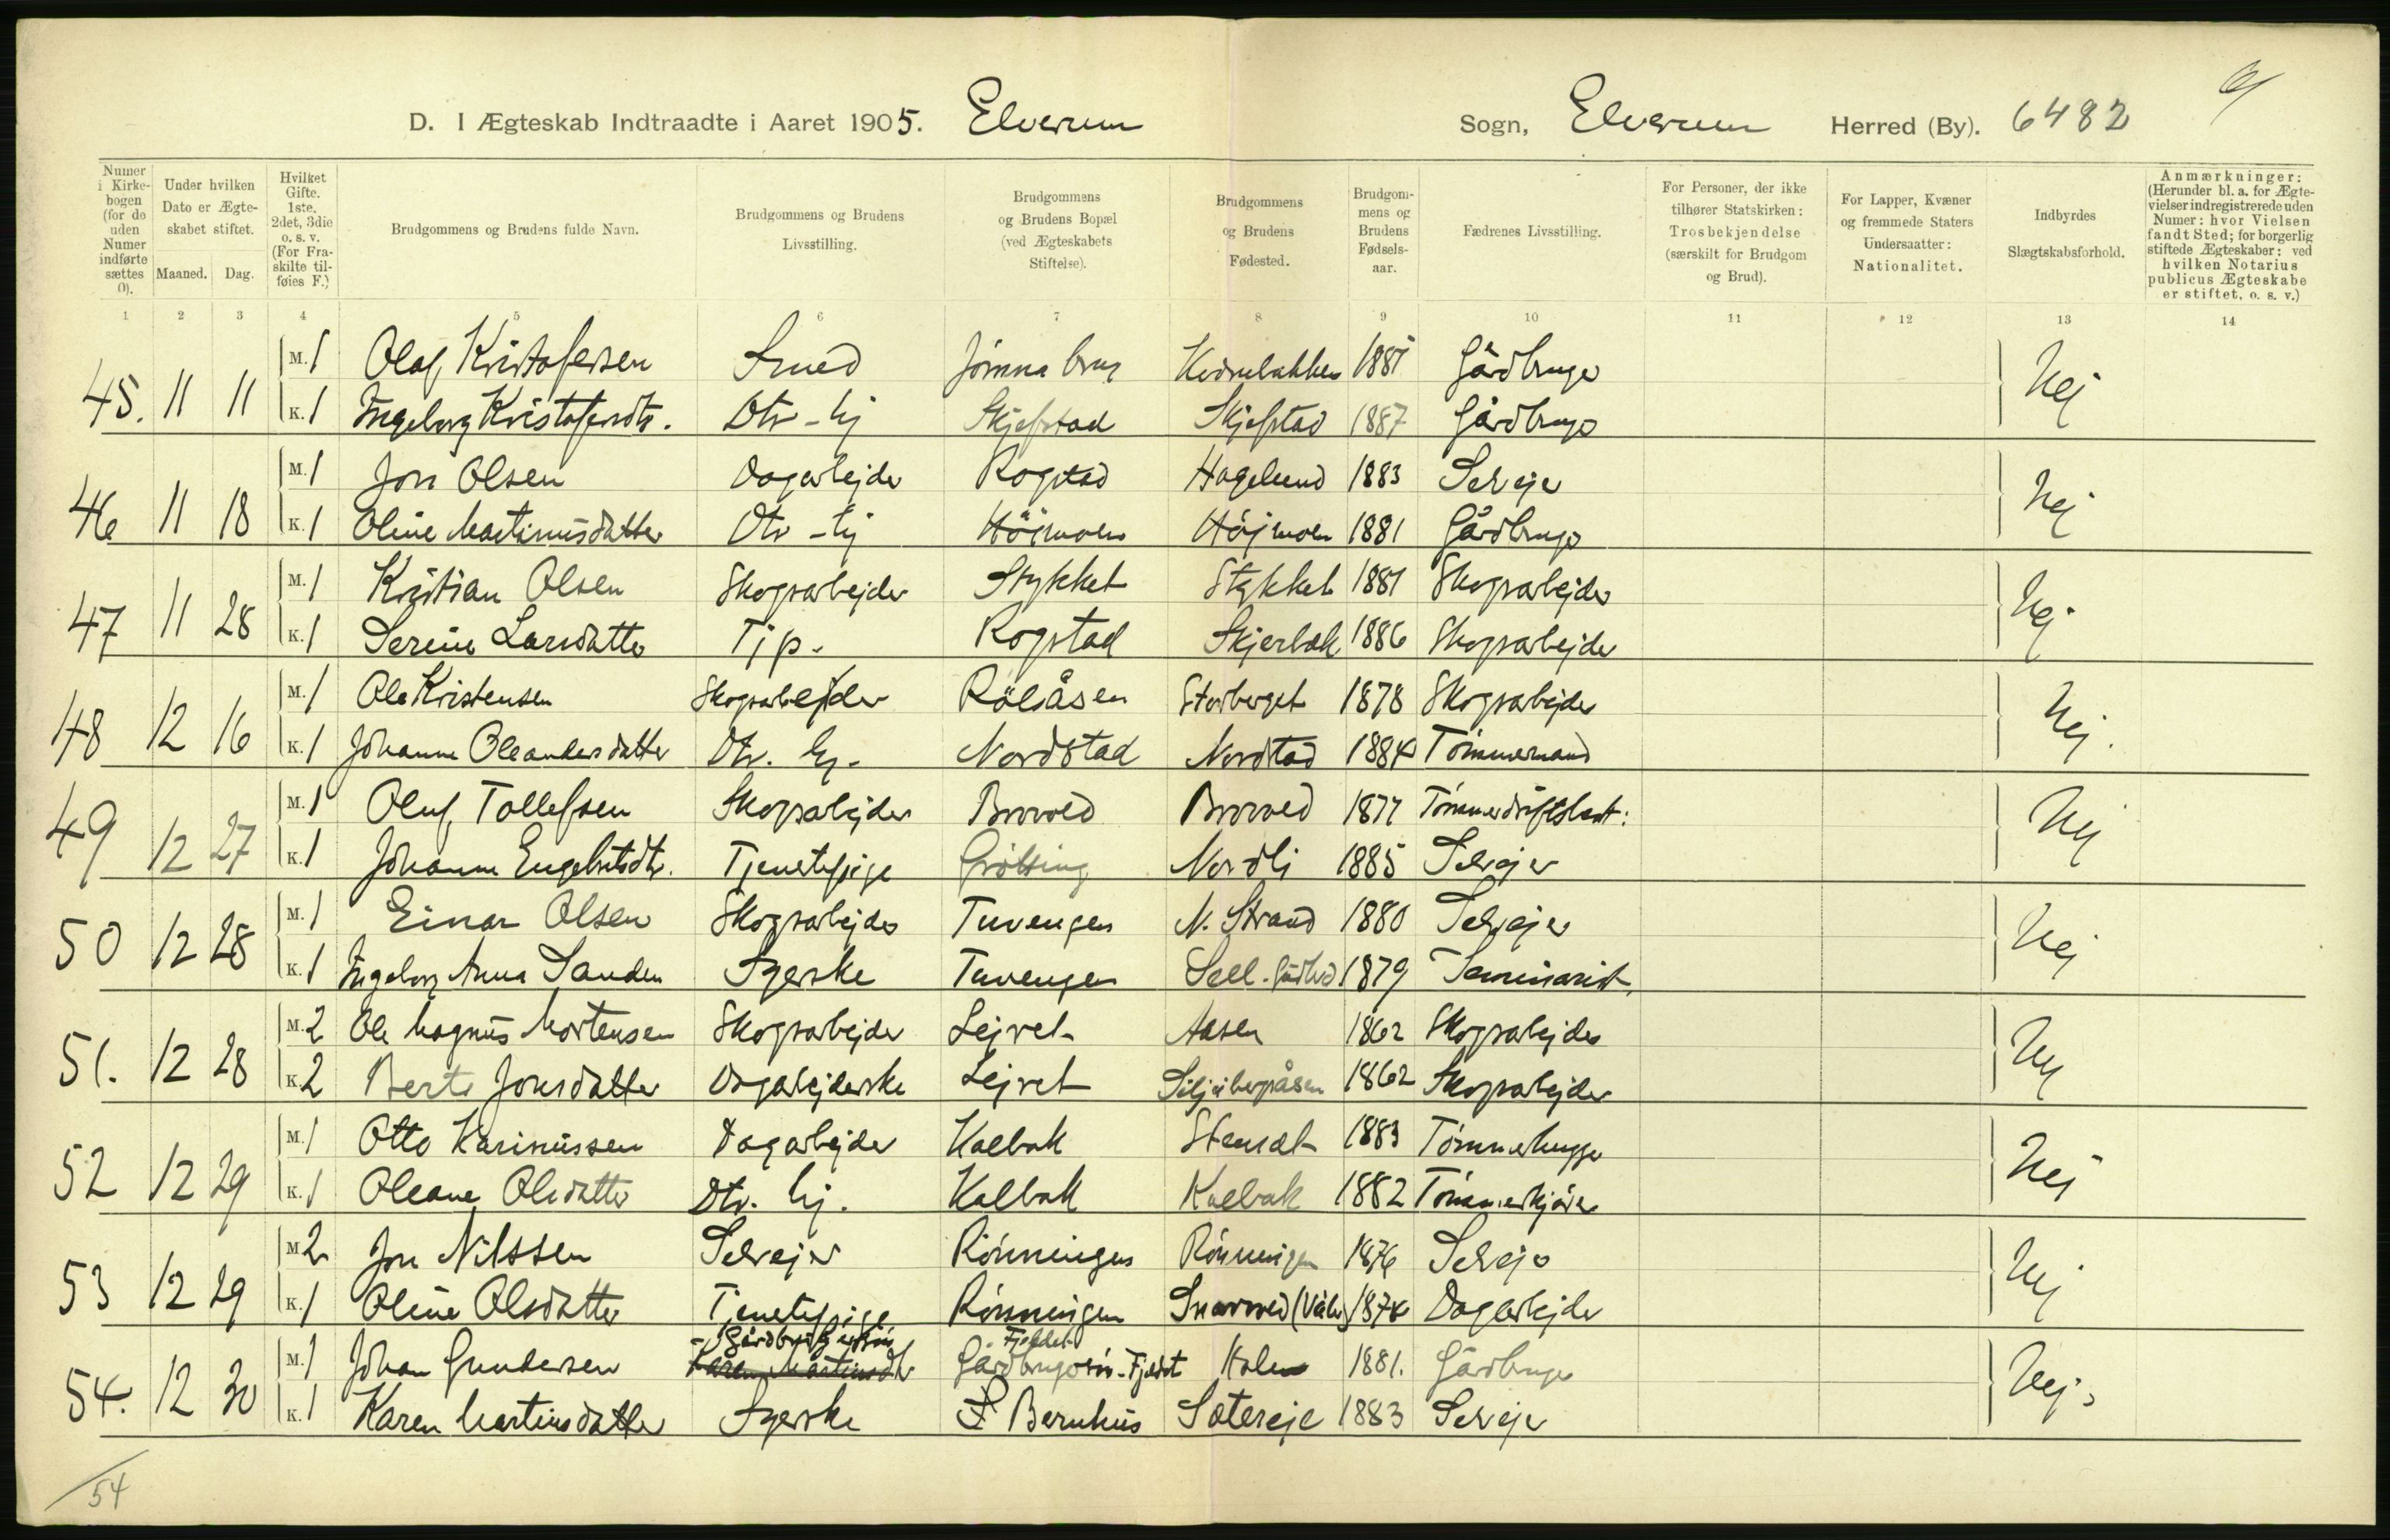 D. I Ægteskab Indtraadte i Aaret 1905. Elverum Sogn, Elverum Herred (By). 6482
Numer i Kirkebogen (for de uden Numer indførte sættes 0).
Under hvilken Dato er Ægteskabet stiftet.
Maaned. Dag.
Hvilket Gifte. 1ste, 2det, 3die o. s. v. (For Fraskilte tilføies F.)
Brudgommens og Brudens fulde Navn.
Brudgommens og Brudens Livsstilling.
Brudgommens og Brudens Bopæl (ved Ægteskabets Stiftelse).
Brudgommens og Brudens Fødested.
Brudgommens og Brudens Fødselsaar.
Fædrenes Livsstilling.
For Personer, der ikke tilhører Statskirken: Trosbekjendelse (særskilt for Brudgom og Brud).
For Lapper, Kvæner og fremmede Staters Undersaatter: Nationalitet.
Indbyrdes Slægtskabsforhold.
Anmærkninger: (Herunder bl. a. for Ægtevielser indregistrerede uden Numer: hvor Vielsen fandt Sted; for borgerlig stiftede Ægteskaber: ved hvilken Notarius publicus Ægteskabe er stiftet, o. s. v.)
1 2 3 4 5 6 7 8 9 10 11 12 13 14
45. 11 11 M. 1 Olaf Kristofersen Smed Jömna brug 1881 Gårdbruger Nej
K. 1 Ingeborg Kristofersdtr. Dtr - hj Skjefstad Skjefstad 1887 Gårdbruger
46 11 18 M. 1 Jon Olsen Dagarbejder Rogstad Hagelund 1883 Selvejer Nej
K. 1 Oline Martinusdatter Dtr - hj Höimoen Höjmoen 1881 Gårdbruger
47 11 28 M. 1 Kristian Olsen Skogsarbejder Stykket Stykket 1881 Skogsarbejder Nej
K. 1 Serine Larsdatter Tjp. Rogstad Skjerbæk 1886 Skogsarbejder
48 12 16 M. 1 Ole Kristensen Skogsarbejder Rölsåsen Storberget 1878 Skogsarbejder Nej.
K. 1 Johanne Oleandersdatter Dtr. hj. Nordstad Nordstad 1884 Tömmermand
49 12 27 M. 1 Oluf Tollefsen Skogsarbejder Brovold Brovold 1877 Nej
K. 1 Johanne Engebretsdtr. Tjenestepige Grötting Nordli 1885 Selvejer
50 12 28 M. 1 Einar Olsen Skogsarbejder Tuvengen N. Strand 1880 Selvejer Nej
K. 1 Ingeborg Anna Sanden Syerske Tuvengen 1879 Seminarist.
51. 12 28 M. 2 Ole Magnus Mortensen Skogsarbejder Lejret Aasen 1862 Skogsarbejder Nej
K. 2 Berte Jonsdatter Dagarbejderske Lejret Siljubergåsen 1862 Skogsarbejder
52 12 29 M. 1 Otto Karinussen Dagarbejder Kolbak 1883 Tömmerhugger Nej
K. 1 Oleane Olsdatter Dtr. hj. Kolbak Kolbak 1882 Tömmerkjörer
53 12 29 M. 2 Jon Nilssen Selvejer Rönningen Rönningen 1876 Selvejer Nej
K. 1 Oline Olsdatter Tjenestepige Rönningen Snarved (Våler) 1874 Dagarbejder
54. 12 30 M. 1 Johan Gundersen Gårdbrugersön Karen Martinsdtr Fjeldet Gårdbrugersön - Fjeldet Holen 1881. Gårdbruger Nej.
K. 1 Karen Martinsdatter Syerske Bernhus Sætereje 1883 Selvejer
54